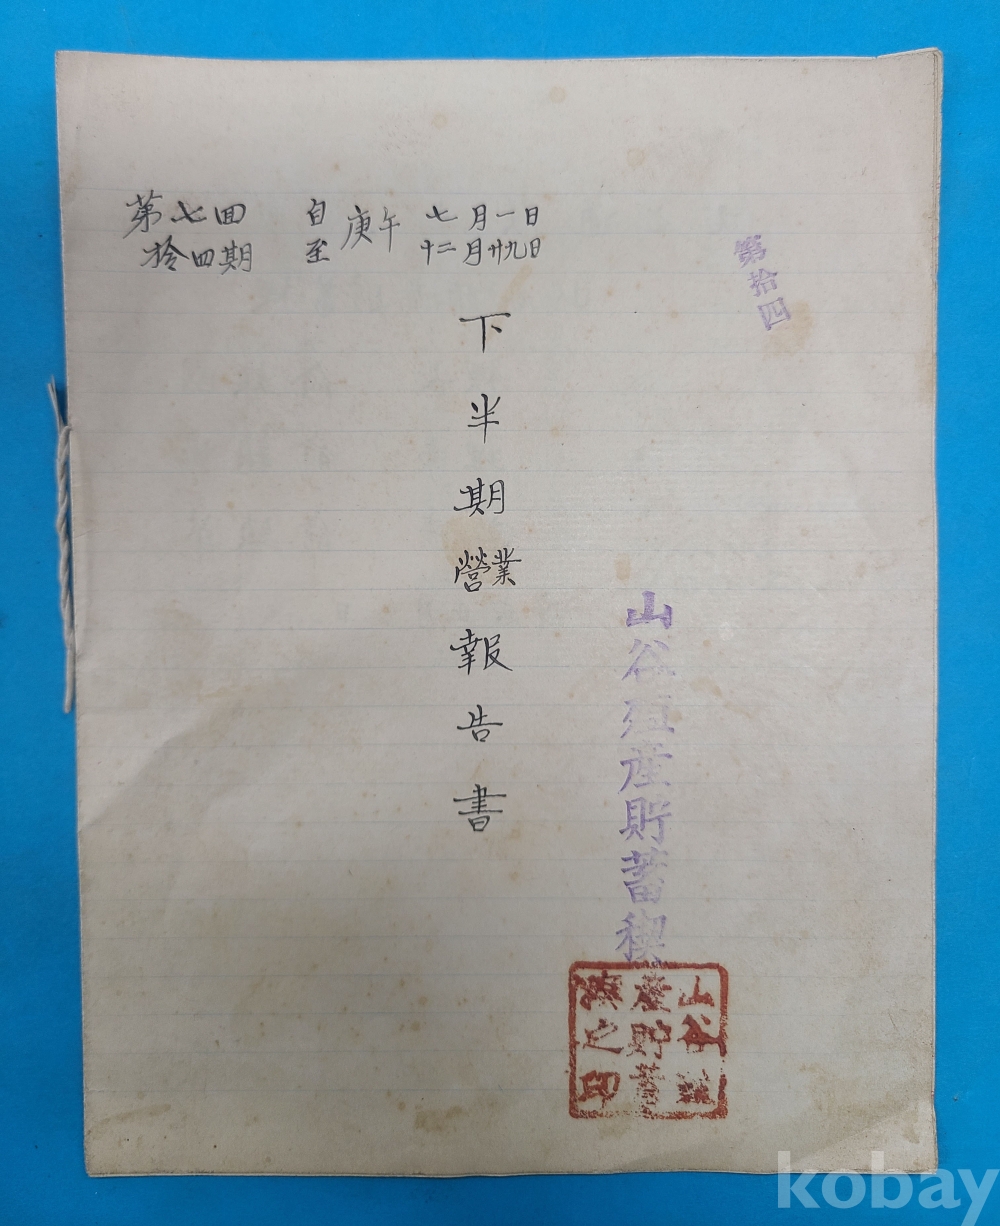 第七回
拾四期
自 庚午 七月一日
至 十二月卄九日
第拾四
下半期營業報告書
山谷殖産貯蓄稧
山谷殖
産貯蓄
稧之印
kobay